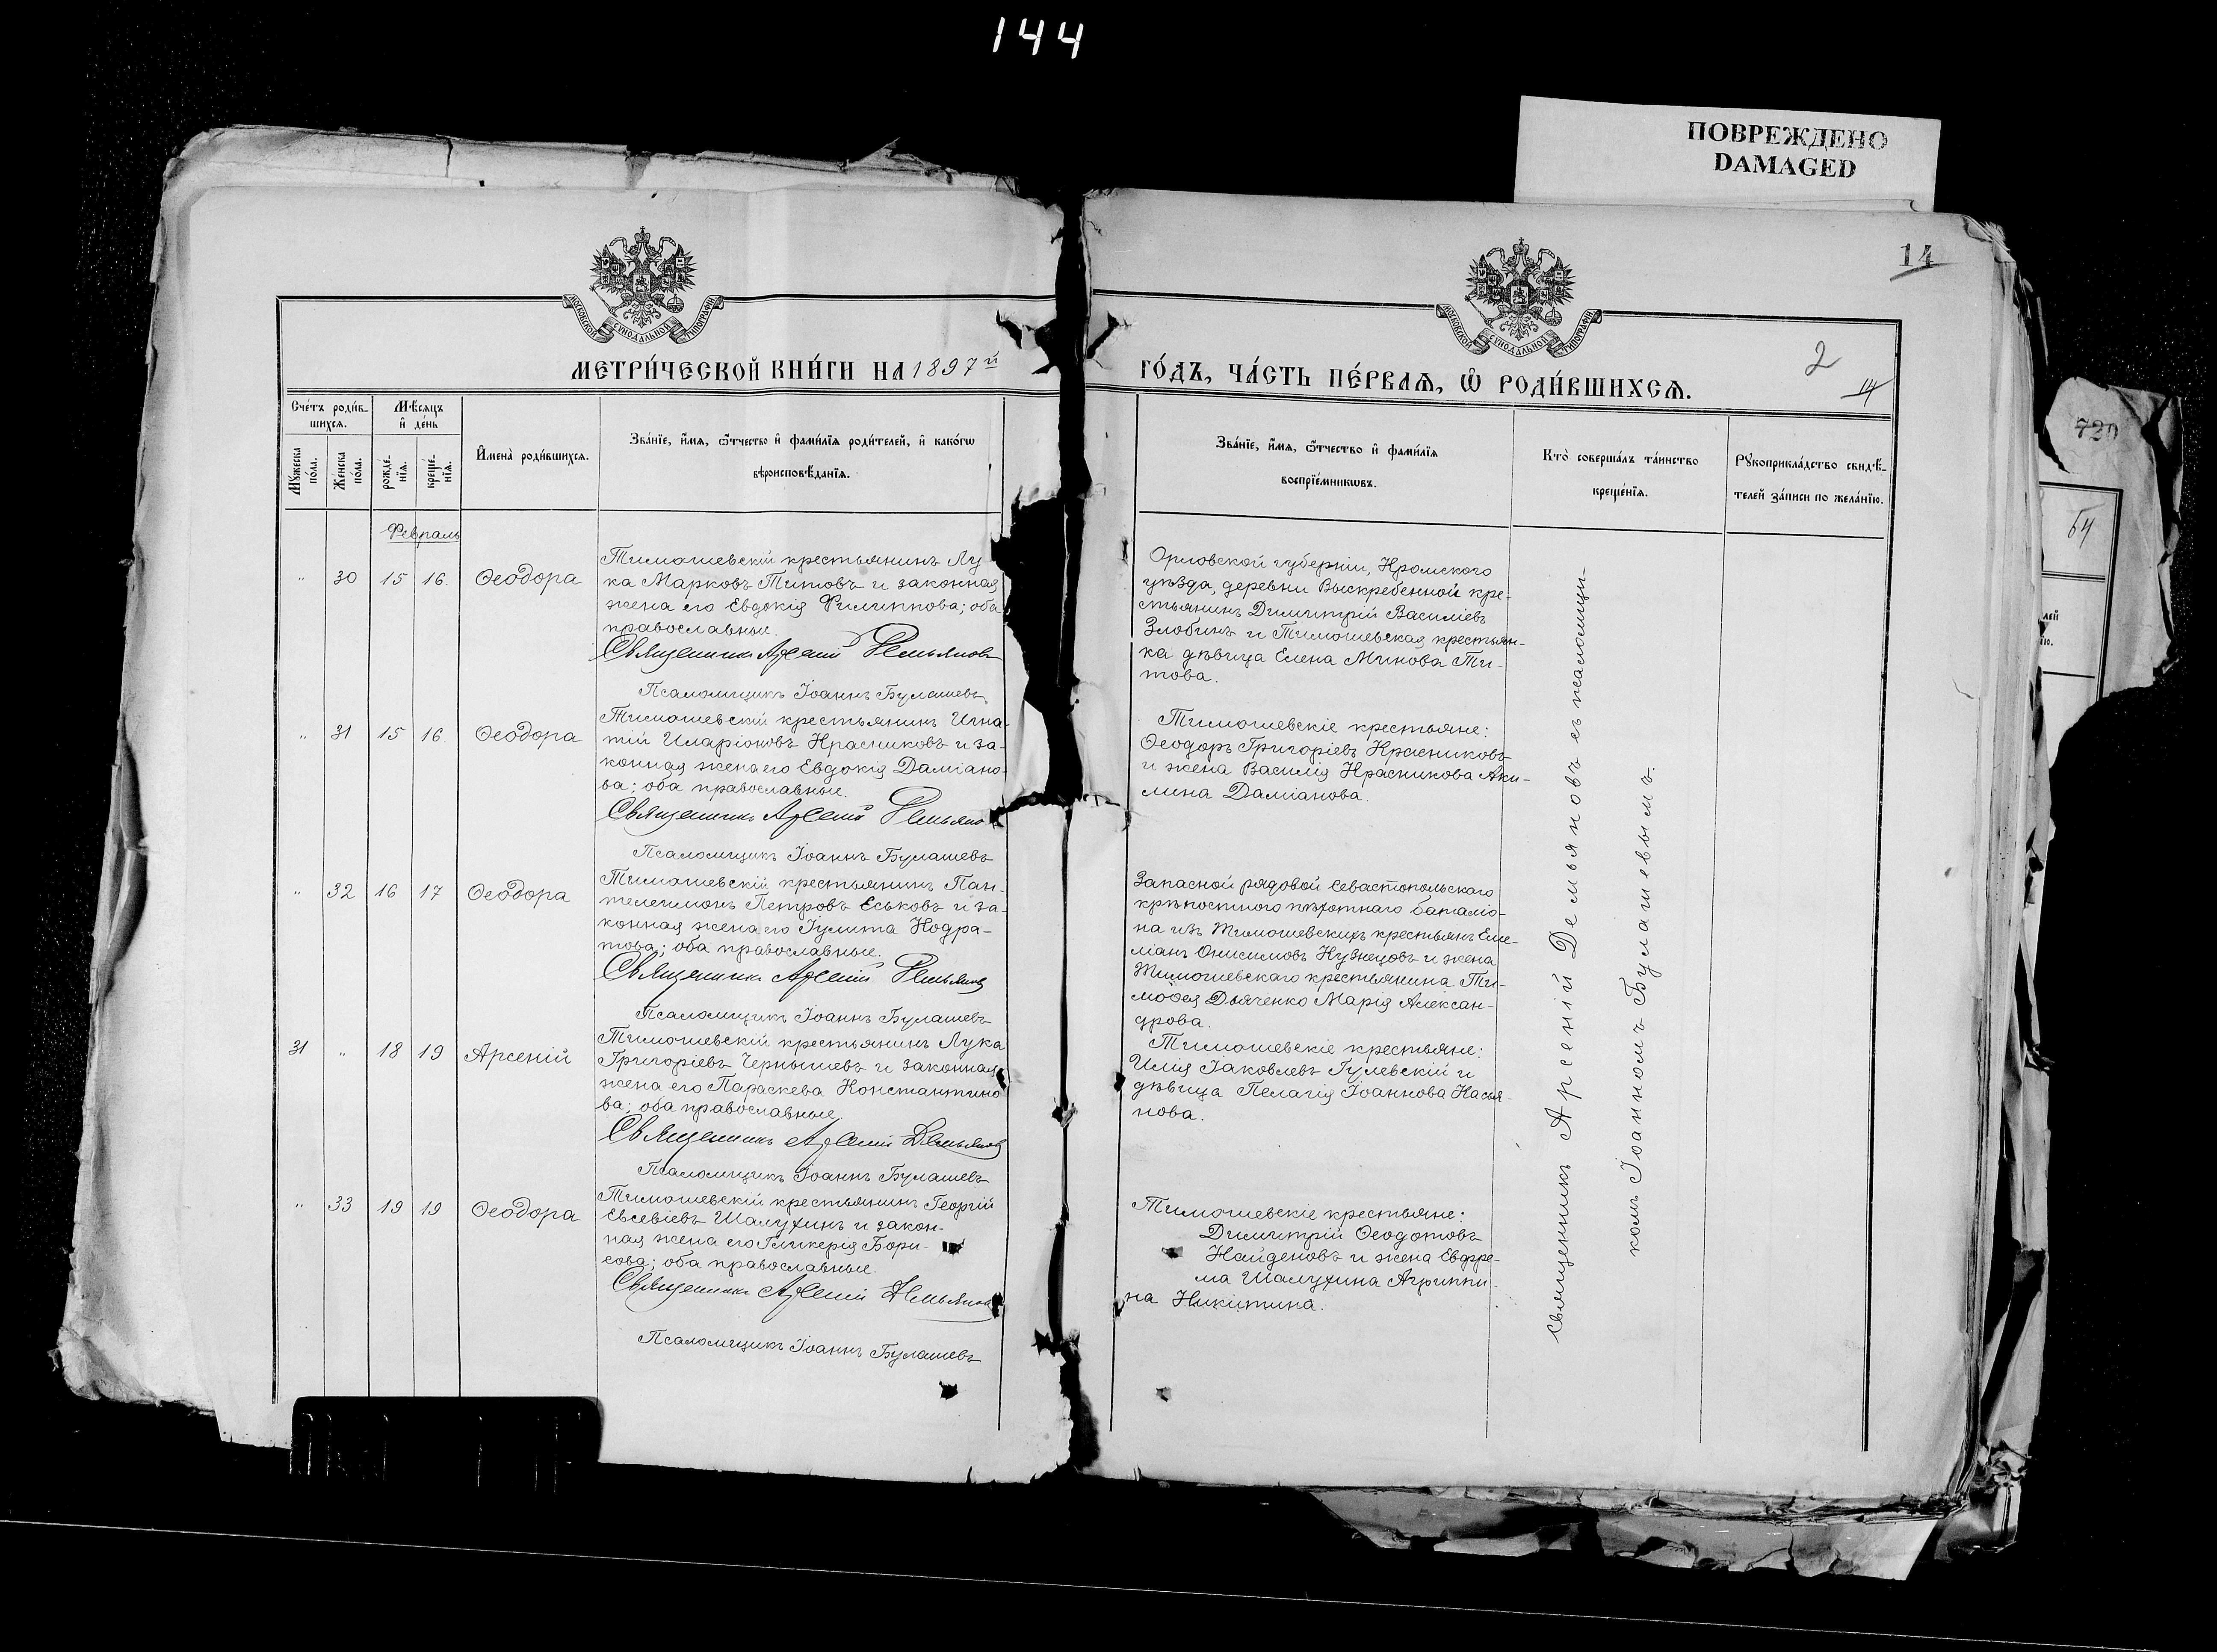 144
ПОВРЕЖДЕНО
DAMAGED
14
МОСКОВСКОЙ СѴНОДАЛЬНОЙ ТИПОГРАФІИ
МОСКОВСКОЙ СѴНОДАЛЬНОЙ ТИПОГРАФІИ
МЕТРИ́ЧЕСКОЙ КНИ́ГИ НА 1897й
ГО́ДЪ, ЧА́СТЬ ПЕ́РВАѦ, Ѽ РОДИ́ВШИХСѦ.
2
14
720
64
Сче́тъ роди́в-
шихся.
Мѣ́сяцъ
и҆ де́нь
Мꙋ́жеска
по́ла.
Же́нска
по́ла.
рожде́-
нїя.
креще́-
нїя.
И҆мена̀ роди́вшихся.
Зва́нїе, и҆́мя, ѻ҆́тчество и҆ фами́лїя роди́телей, и҆ како́гѡ
вѣроисповѣ́данїя.
Зва́нїе, и҆́мя, ѻ҆́тчество и҆ фами́лїя
воспрїе́мникѡвъ.
Кто̀ соверша́лъ та́инство
креще́нїя.
Рꙋкоприкла́дство свидѣ́-
телей за́писи по жела́нїю.
Февраль
„ 30 15 16 Ѳеодора
Тимошевскій крестьянинъ Лу
ка Марковъ Титовъ и законная
жена его Евдокія Филиппова; оба
православные.
Священникъ Арсеній Демьяновъ
Псаломщикъ Іоаннъ Булашевъ
Орловской губерніи, Кромского
уѣзда, деревни Выскребенной кре-
стьянинъ Димитрій Василіевъ
Злобинъ и Тимошевская крестьян-
ка дѣвица Елена Минова Ти-
това.
„ 31 15 16 Ѳеодора
Тимошевскій крестьянинъ Игна-
тій Иларіоновъ Красниковъ и за-
конная жена его Евдокія Даміано-
ва; оба православные.
Священникъ Арсеній Демьяно
Псаломщикъ Іоаннъ Булашевъ
Тимошевскіе крестьяне:
Ѳеодоръ Григоріевъ Красниковъ
и жена Василія Красникова Аки-
лина Даміанова.
„ 32 16 17 Ѳеодора
Тимошевскій крестьянинъ Пан-
телеимонъ Петровъ Еськовъ и за-
конная жена его Іулита Кодра-
това; оба православные.
Священникъ Арсеній Демьянов
Псаломщикъ Іоаннъ Булашевъ
Запасной рядовой Севастопольскаго
крѣпостного пѣхотнаго баталіо-
на изъ Тимошевскихъ крестьянъ Еме-
ліанъ Онисимовъ Кузнецовъ и жена
Тимошевскаго крестьянина Ти-
моѳея Дьяченко Марія Алексан-
дрова.
31 „ 18 19 Арсеній
Тимошевскій крестьянинъ Лука
Григоріевъ Чернышевъ и законная
жена его Параскева Константино
ва; оба православные.
Священникъ Арсеній Демьянов
Псаломщикъ Іоаннъ Булашевъ
Тимошевскіе крестьяне:
Илія Іаковлевъ Гулевскій и
дѣвица Пелагія Іоаннова Касья-
нова.
„ 33 19 19 Ѳеодора
Тимошевскій крестьянинъ Георгій
Евсевіевъ Шалухинъ и закон-
ная жена его Гликерія Бори-
сова; оба православные.
Священникъ Арсеній Демьянов
Псаломщикъ Іоаннъ Булашевъ
Тимошевскіе крестьяне:
Димитрій Ѳеодотовъ
Найденовъ и жена Ефре-
ма Шалухина Агриппи-
на Никитина.
Священникъ Арсеній Демьяновъ съ псаломщи-
комъ Іоанномъ Булашевымъ.